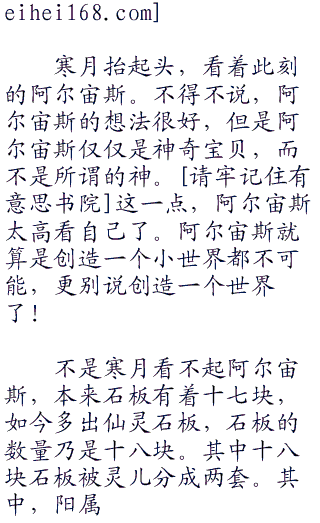 eihei168.com]
寒月抬起头，看着此刻
的阿尔宙斯。不得不说，阿
尔宙斯的想法很好，但是阿
尔宙斯仅仅是神奇宝贝，而
不是所谓的神。[请牢记住有
意思书院]这一点，阿尔宙斯
太高看自己了。阿尔宙斯就
算是创造一个小世界都不可
能，更别说创造一个世界
了！
不是寒月看不起阿尔宙
斯，本来石板有着十七块，
如今多出仙灵石板，石板的
数量乃是十八块。其中十八
块石板被灵儿分成两套。其
中，阳属